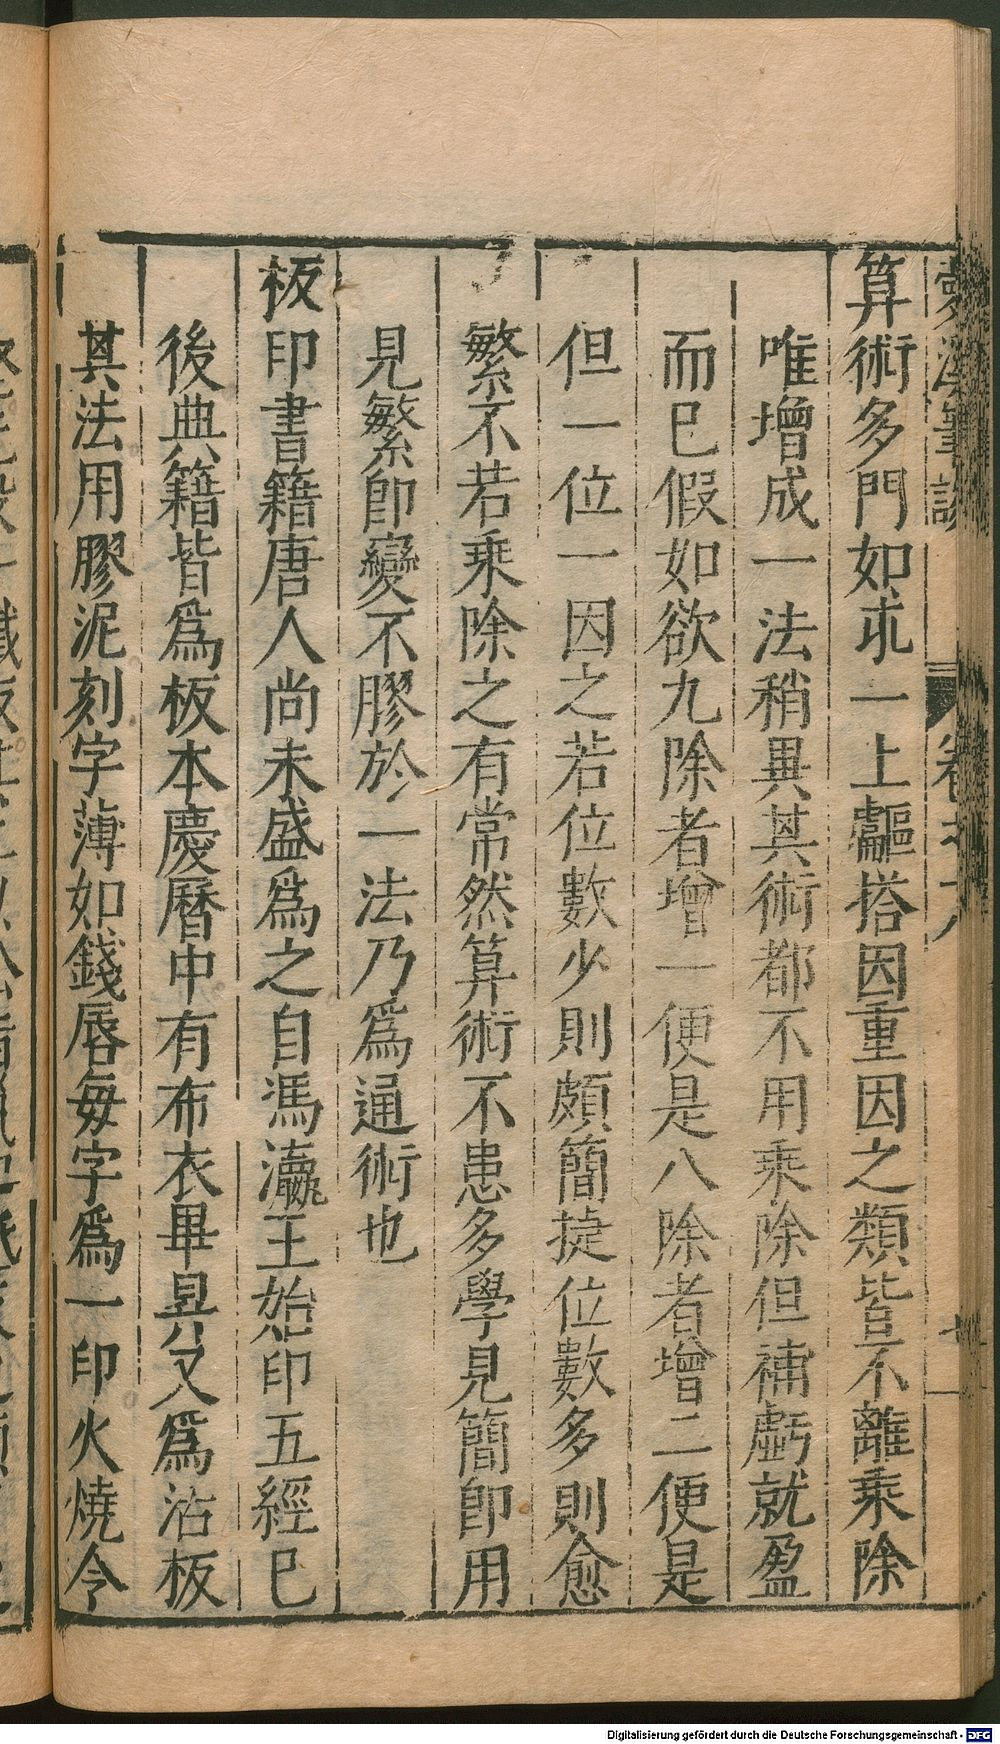 夢溪筆談
卷十八
算術多門如求一上驅搭因重因之類皆不離乘除
唯增成一法稍異其術都不用乘除但補虧就盈
而已假如欲九除者增一便是八除者增二便是
但一位一因之若位數少則頗簡捷位數多則愈
繁不若乘除之有常然算術不患多學見簡即用
見繁即變不膠於一法乃爲通術也
板印書籍唐人尚未盛爲之自馮瀛王始印五經已
後典籍皆爲板本慶曆中有布衣畢昇又爲活板
其法用膠泥刻字薄如錢唇每字爲一印火燒令
Digitalisierung gefördert durch die Deutsche Forschungsgemeinschaft - DFG